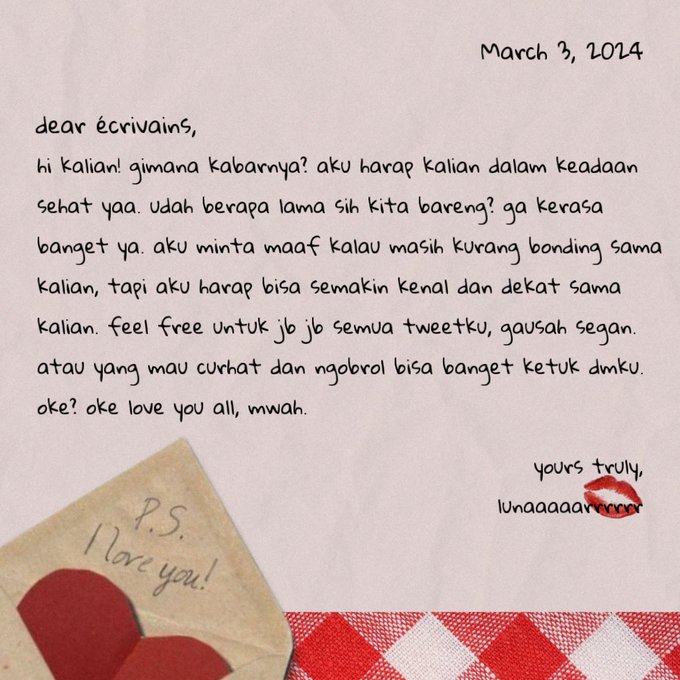 March 3, 2024
dear écrivains,
hi kalian! gimana kabarnya? aku harap kalian dalam keadaan
sehat yaa. udah berapa lama sih kita bareng? ga kerasa
banget ya. aku minta maaf kalau masih kurang bonding sama
kalian, tapi aku harap bisa semakin kenal dan dekat sama
kalian. feel free untuk jb jb semua tweetku, gausah segan.
atau yang mau curhat dan ngobrol bisa banget ketuk dmku.
oke? oke love you all, mwah.
yours truly,
lunaaaaarrrrrr
P.S.
I love you!